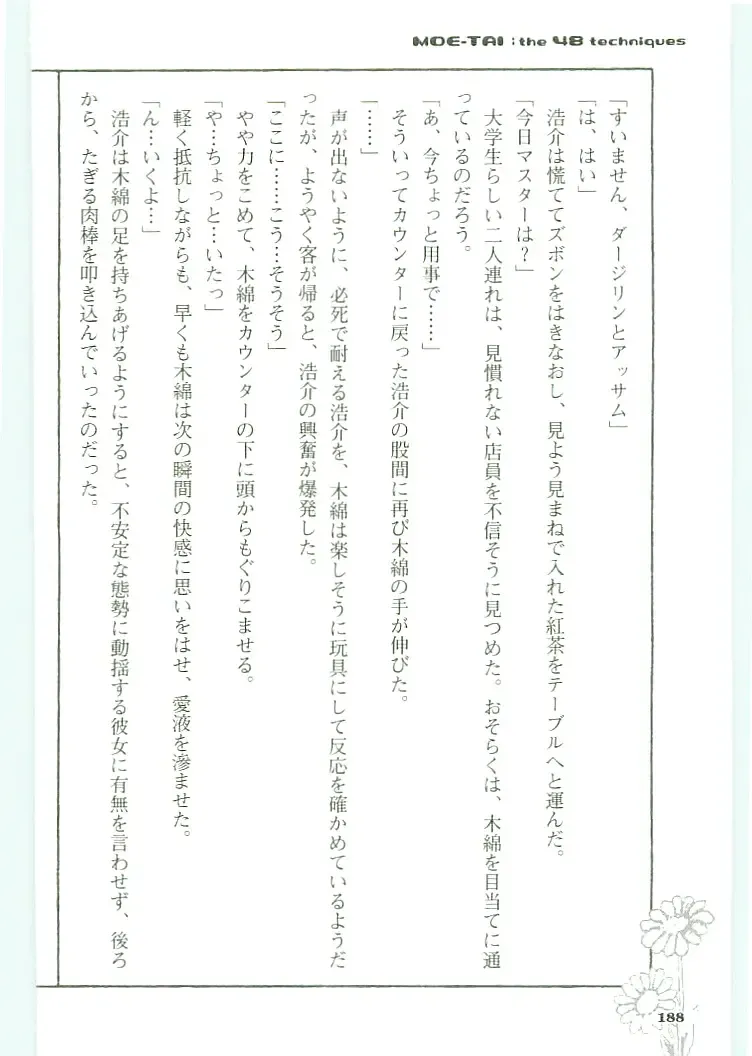 MOE-TAI : the 48 techniques
「すいません、ダージリンとアッサム」
「は、はい」
浩介は慌ててズボンをはきなおし、見よう見まねで入れた紅茶をテーブルへと運んだ。
「今日マスターは?」
大学生らしい二人連れは、見慣れない店員を不信そうに見つめた。おそらくは、木綿を目当てに通
っているのだろう。
「あ、今ちょっと用事で……」
そういってカウンターに戻った浩介の股間に再び木綿の手が伸びた。
「……」
声が出ないように、必死で耐える浩介を、木綿は楽しそうに玩具にして反応を確かめているようだ
ったが、ようやく客が帰ると、浩介の興奮が爆発した。
「ここに……こう…そうそう」
やや力をこめて、木綿をカウンターの下に頭からもぐりこませる。
「や…ちょっと…いたっ」
軽く抵抗しながらも、早くも木綿は次の瞬間の快感に思いをはせ、愛液を滲ませた。
「ん…いくよ…」
浩介は木綿の足を持ちあげるようにすると、不安定な態勢に動揺する彼女に有無を言わせず、後ろ
から、たぎる肉棒を叩き込んでいったのだった。
188